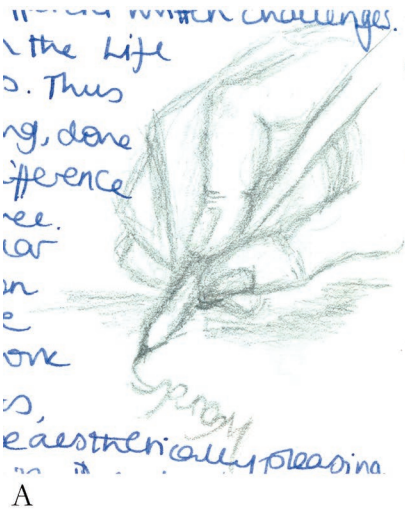 written challenges.
the Life
s. Thus
ng, done
ifference
ree.
on
e
ork
s,
e aesthetically pleasing
A